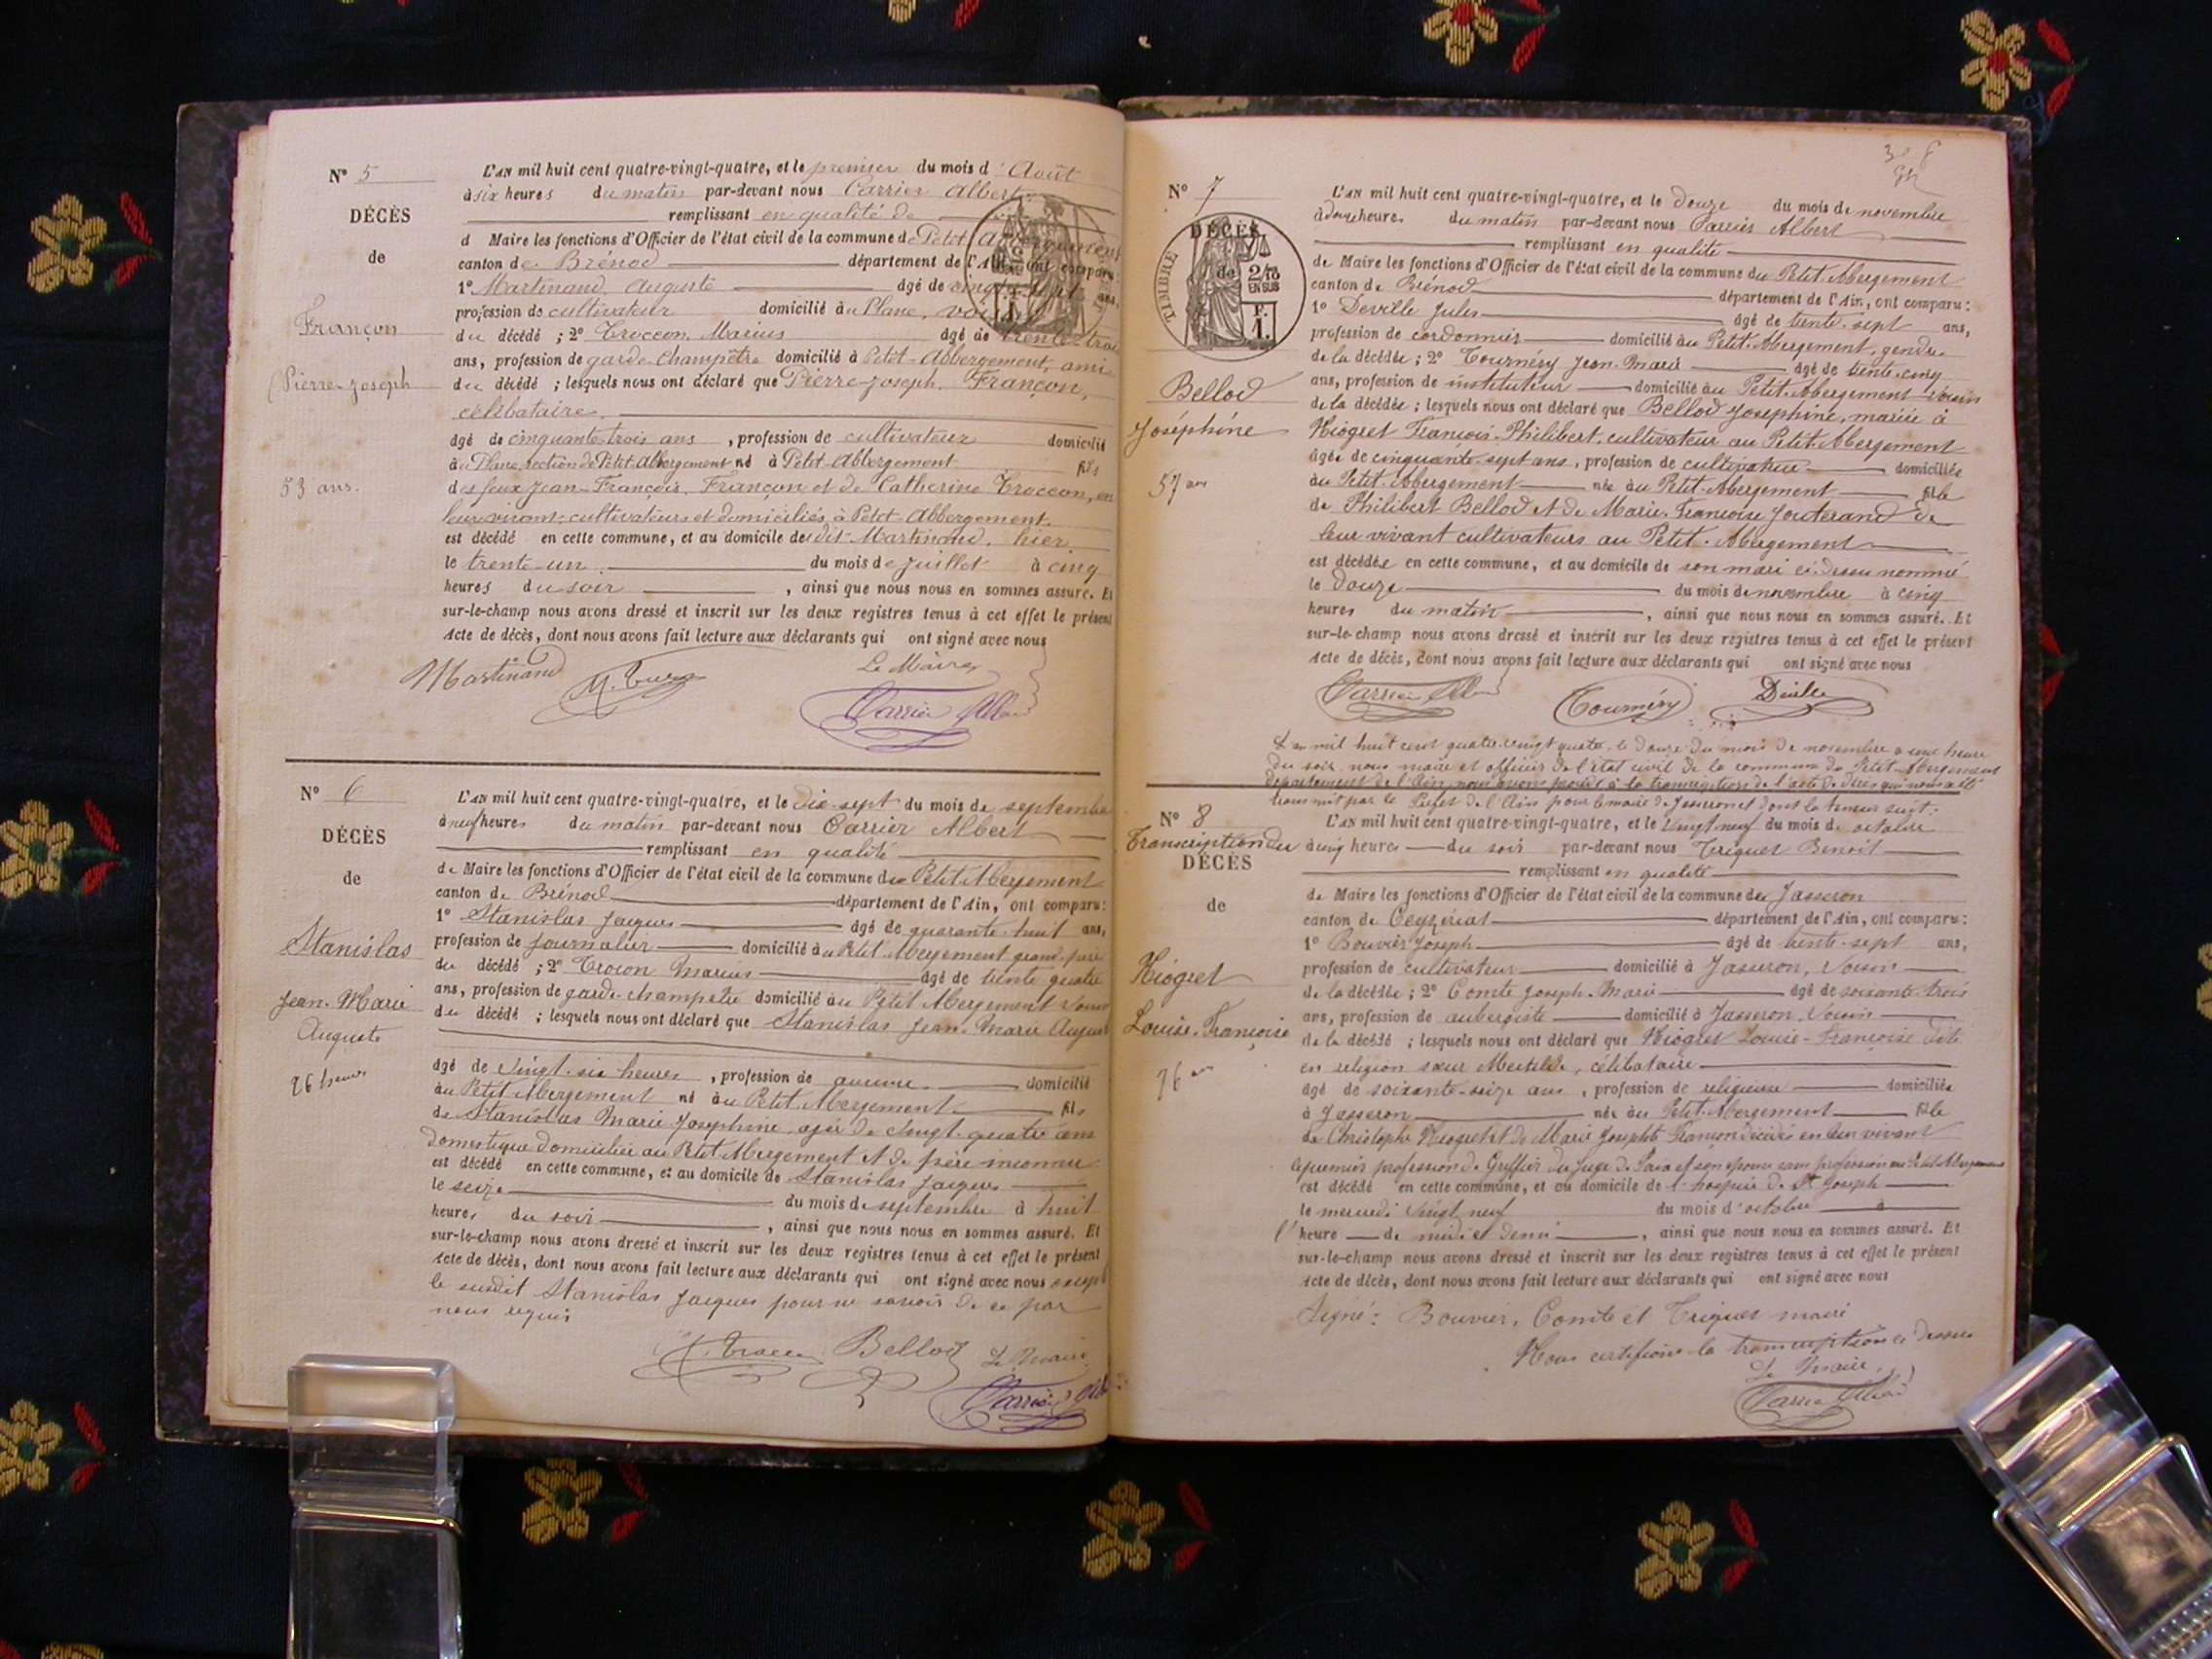 N° 5
DÉCÈS
de
Françon
Pierre-Joseph
53 ans.
L'AN mil huit cent quatre-vingt-quatre, et le premier du mois d'Août
à six heures du matin par-devant nous Carrier Albert
remplissant en qualité de
d Maire les fonctions d'Officier de l'état civil de la commune de Petit Abbergement
canton de Brénod département de l'Ain, ont comparu:
1° Martinand Auguste âgé de cinquante-sept ans,
profession de cultivateur domicilié au Plane, voisin
du décédé ; 2° Troccon Marius âgé de trente-trois
ans, profession de garde-champêtre domicilié à Petit-Abbergement, ami
du décédé ; lesquels nous ont déclaré que Pierre-Joseph Françon,
célibataire.
âgé de cinquante-trois ans , profession de cultivateur domicilié
au Plane, section de Petit Abbergement né à Petit-Abbergement fils
des feux Jean-François Françon et de Catherine Troccon, en
leur vivant cultivateurs et domiciliés à Petit-Abbergement.
est décédé en cette commune, et au domicile dudit Martinand, hier
le trente-un du mois de Juillet à cinq
heures du soir , ainsi que nous nous en sommes assuré. Et
sur-le-champ nous avons dressé et inscrit sur les deux registres tenus à cet effet le présent
Acte de décès, dont nous avons fait lecture aux déclarants qui ont signé avec nous
Martinand Le Maire
Carrier Albert
N° 6
DÉCÈS
de
Stanislas
Jean-Marie
Auguste
26 heures
L'AN mil huit cent quatre-vingt-quatre, et le dix-sept du mois de septembre
à neuf heures du matin par-devant nous Carrier Albert
remplissant en qualité
de Maire les fonctions d'Officier de l'état civil de la commune du Petit Abergement
canton de Brénod département de l'Ain, ont comparu:
1° Stanislas Jacques âgé de quarante-huit ans,
profession de journalier domicilié au Petit Abergement grand-père
du décédé ; 2° Trocon Marius âgé de trente quatre
ans, profession de garde-champetre domicilié au Petit Abergement voisin
du décédé ; lesquels nous ont déclaré que Stanislas Jean-Marie Auguste
âgé de vingt-six heures , profession de aucune domicilié
au Petit Abergement né au Petit Abergement fils
de Stanislas Marie Josephine agée de vingt-quatre ans
domestique domiciliée au Petit Abergement et de père inconnu
est décédé en cette commune, et au domicile de Stanislas Jacques
le seize du mois de septembre à huit
heures du soir , ainsi que nous nous en sommes assuré. Et
sur-le-champ nous avons dressé et inscrit sur les deux registres tenus à cet effet le présent
Acte de décès, dont nous avons fait lecture aux déclarants qui ont signé avec nous excepté
le susdit Stanislas Jacques pour ne savoir de ce par
nous requis
Bellod Le Maire
Carrier Albert
N° 7
DÉCÈS
de
TIMBRE
2/10 EN SUS
F. 1.
Bellod
Joséphine
57 ans
L'AN mil huit cent quatre-vingt-quatre, et le douze du mois de novembre
à douze heures du matin par-devant nous Carrier Albert
remplissant en qualité
de Maire les fonctions d'Officier de l'état civil de la commune du Petit-Abergement
canton de Brénod département de l'Ain, ont comparu:
1° Deville Jules âgé de trente-sept ans,
profession de cordonnier domicilié au Petit-Abergement, gendre
de la décédée ; 2° Tournéry Jean-Marie âgé de trente-cinq
ans, profession de instituteur domicilié au Petit-Abergement voisin
de la décédée ; lesquels nous ont déclaré que Bellod Josephine, mariée à
Niogret François-Philibert, cultivateur au Petit-Abergement
âgée de cinquante-sept ans, profession de cultivateur domiciliée
au Petit-Abergement née au Petit-Abergement fille
de Philibert Bellod et de Marie-Françoise Jouterand de
leur vivant cultivateurs au Petit-Abergement
est décédée en cette commune, et au domicile de son mari ci-dessu nommé
le douze du mois de novembre à cinq
heures du matin , ainsi que nous nous en sommes assuré. Et
sur-le-champ nous avons dressé et inscrit sur les deux registres tenus à cet effet le présent
Acte de décès, dont nous avons fait lecture aux déclarants qui ont signé avec nous
Carrier Albert Tournéry Deville
L'an mil huit cent quatre-vingt quatre, le douze du mois de novembre à une heure
du soir nous maire et officier de l'état civil de la commune du Petit-Abergement
département de l'Ain, nous avons procédé à la transcription de l'acte de décès qui nous a été
transmit par le Préfet de l'Ain pour le maire de Jasseron et dont la teneur suit:
N° 8
Transcription du
DÉCÈS
de
Niogret
Louise-Françoise
76 ans
L'AN mil huit cent quatre-vingt-quatre, et le vingt neuf du mois d octobre
à cinq heures du soir par-devant nous Triquet Benoit
remplissant en qualité
de Maire les fonctions d'Officier de l'état civil de la commune de Jasseron
canton de Ceyzériat département de l'Ain, ont comparu:
1° Bouvier Joseph âgé de trente-sept ans,
profession de cultivateur domicilié à Jasseron, voisin
de la décédée ; 2° Comte Joseph-Marie âgé de soixante-trois
ans, profession de aubergiste domicilié à Jasseron, voisin
de la décédé ; lesquels nous ont déclaré que Niogret Louise-Françoise dite
en religion sœur Mectilde, célibataire
âgé de soixante-seize ans , profession de religieuse domiciliée
à Jasseron née au Petit-Abergement fille
de Christophe Niogret et de Marie Josephte Françon décédés en leur vivant
le premier profession de Greffier du Juge de Paix et son épouse sans profession au Petit Abergement
est décédé en cette commune, et au domicile de l'hospice de St Joseph
le mercredi vingt neuf du mois d'octobre à
l'heure de midi et demi , ainsi que nous nous en sommes assuré. Et
sur-le-champ nous avons dressé et inscrit sur les deux registres tenus à cet effet le présent
Acte de décès, dont nous avons fait lecture aux déclarants qui ont signé avec nous
Signé: Bouvier, Comte et Triquet maire
Nous certifions la transcription ci dessus
Le Maire,
Carrier Albert